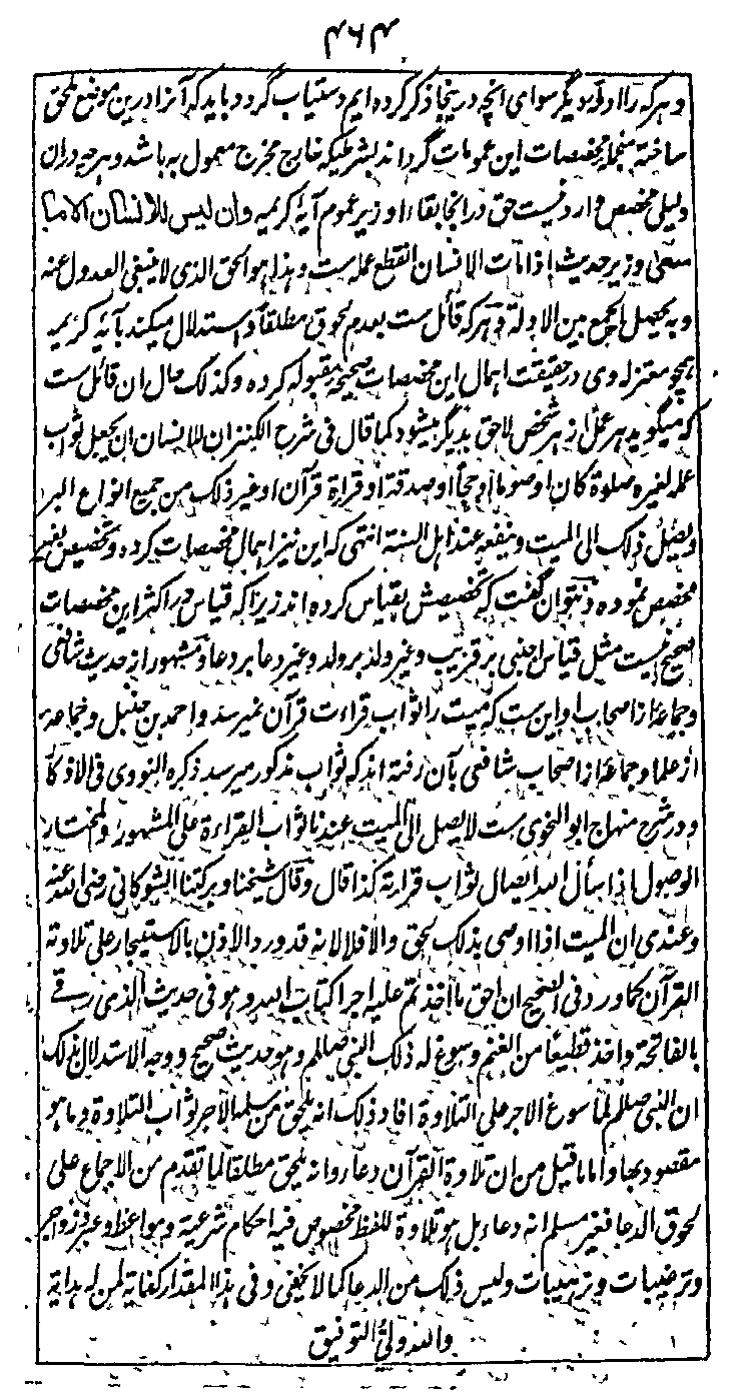 ۴۶۴
و هر که را ادله دیگر سوای انچه درینجا ذکر کرده ایم دستیاب گردد باید که آنرا درین موضع ملحق
ساخته منجمله مخصصات این عمومات گرداند بشرطیکه خارج مخرج معمول به باشد و هرچه دران
دلیلی مخصص وارد نیست حق در انجا بقاء او زیر عموم آیه کریمه وان لیس للانسان الا ما
سعی و زیر حدیث اذا مات الانسان انقطع عمله ست و هذا هو الحق الذی لا ینبغی العدول عنه
و به یحصل الجمع بین الادلة و هر که قائل ست بعدم لحوق مطلقا و استدلال میکند بآیه کریمه
همچو معتزله وی در حقیقت اهمال این مخصصات صحیحه مقبوله کرده و کذلک حال آن قائل ست
که میگوید هر عمل از هر شخص لاحق بدیگر میشود کما قال فی شرح الکنز ان للانسان ان یجعل ثواب
عمله لغیره صلوة کان او صوما او حجا او صدقة او قراءة قرآن او غیر ذلک من جمیع انواع البر
و یصل ذلک الی المیت و ینفعه عند اهل السنة انتهی که این نیز اهمال مخصصات کرده و تخصیص بغیر
مخصص نموده و نتوان گفت که تخصیصش بقیاس کرده اند زیرا که قیاس در اکثر این مخصصات
صحیح نیست مثل قیاس اجنبی بر قریب و غیر ولد بر ولد و غیر دعا بر دعا و مشهور از حدیث شافعی
و جماعة از اصحاب او این ست که میت را ثواب قراءت قرآن نمیرسد و احمد بن حنبل و جماعة
از علما و جماعة از اصحاب شافعی بآن رفته اند که ثواب مذکور میرسد ذکره النووی فی الاذکار
و در شرح منهاج ابو النحوی ست لا یصل الی المیت عندنا ثواب القراءة علی المشهور و المختار
الوصول اذا سأل الله ایصال ثواب قراءته کذا قال و قال شیخنا و برکتنا الشوکانی رضی الله عنه
و عندی ان المیت اذا اوصی بذلک لحق و الا فلا لانه قد ورد الاذن بالاستیجار علی تلاوة
القرآن کما ورد فی الصحیح ان احق ما اخذتم علیه اجرا کتاب الله و هو فی حدیث الذی رقی
بالفاتحة و اخذ قطیعا من الغنم و سوغ له ذلک النبی صللم و هو حدیث صحیح و وجه الاستدلال بذلک
ان النبی صللم لما سوغ الاجر علی التلاوة افاد ذلک انه یلحق من سلم الاجر ثواب التلاوة و ما هو
مقصود بها و اما ما قیل من ان تلاوة القرآن دعاء و انه یلحق مطلقا لما تقدم من الاجماع علی
لحوق الدعا فغیر مسلم انه دعاء بل هو تلاوة للفظ مخصوص فیه احکام شرعیة و مواعظ و عبر و زواجر
و ترغیبات و ترهیبات و لیس ذلک من الدعا کما لا یخفی و فی هذا المقدار کفایة لمن له هدایة
و الله ولی التوفیق